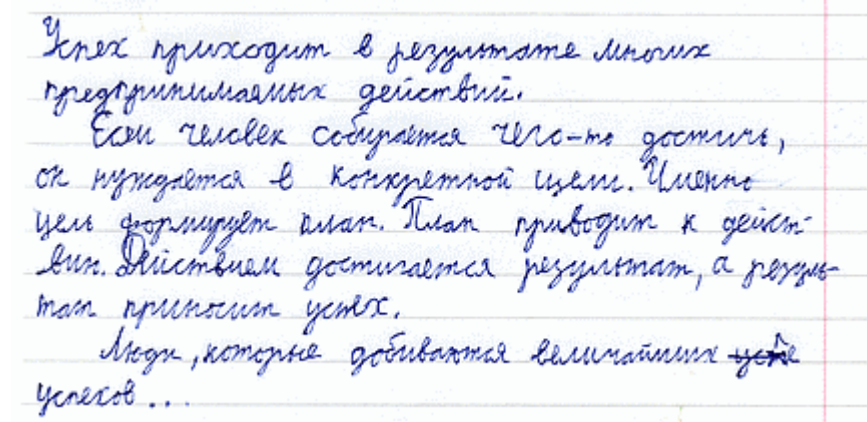 Успех приходит в результате многих
предпринимаемых действий.
Если человек собирается чего-то достичь,
он нуждается в конкретной цели. Именно
цель формирует план. План приводит к дейст-
вии. Действием достигается результат, а резуль-
тат приносит успех.
Люди, которые добиваются величайших успе
успехов...